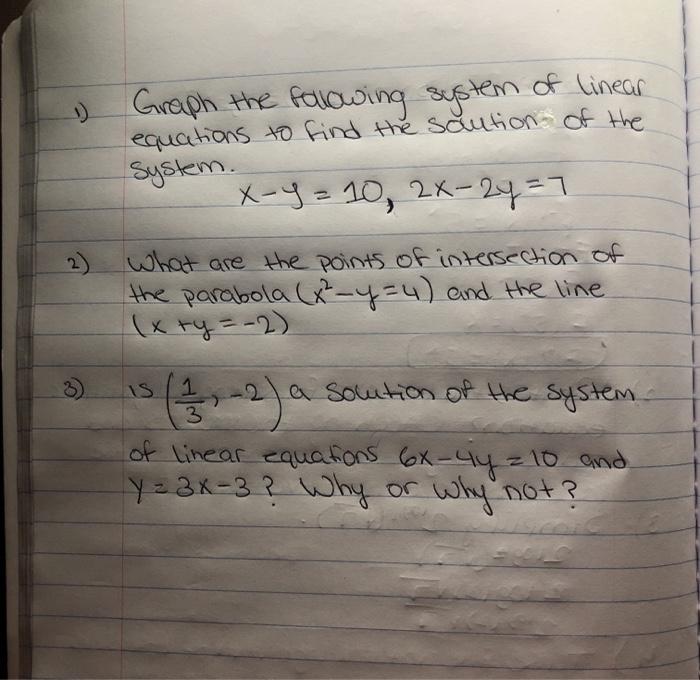 1) Graph the following system of linear
equations to find the solution of the
system.
x-y = 10, 2x-2y=7
2) What are the points of intersection of
the parabola (x²-y=4) and the line
(x+y=-2)
3) is (1/3, -2) a solution of the system
of linear equations 6x-4y=10 and
y=3x-3? Why or why not?